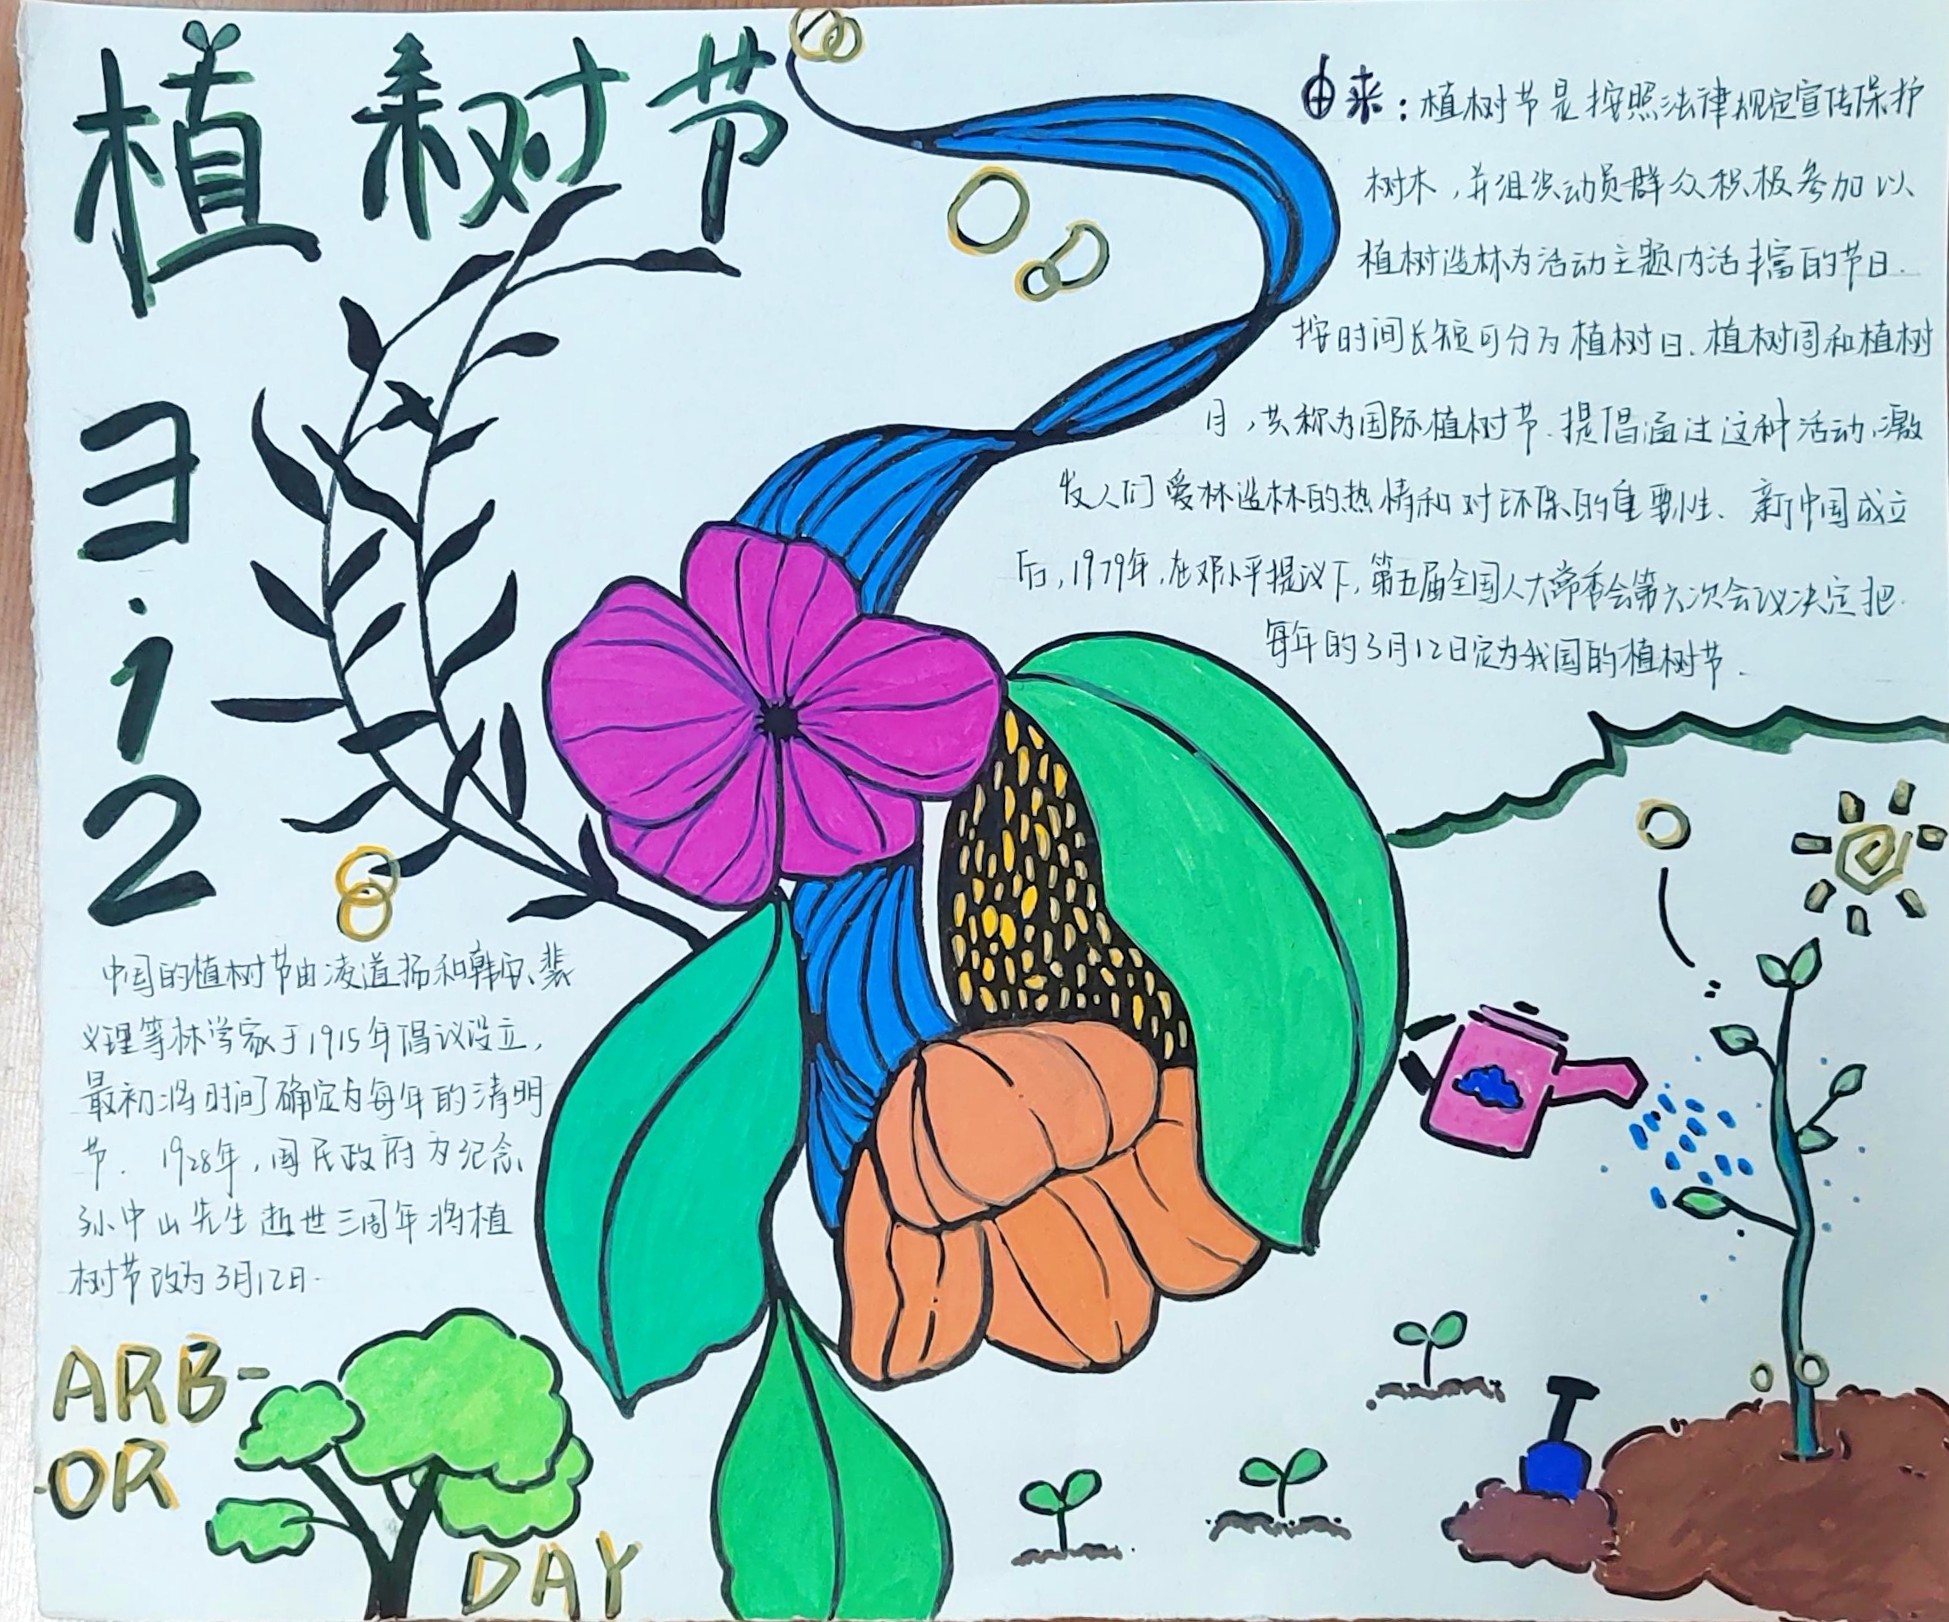 植树节
3.12
由来：植树节是按照法律规定宣传保护
树木，并组织动员群众积极参加以
植树造林为活动主题内活丰富的节日.
按时间长短可分为植树日、植树周和植树
月，共称为国际植树节.提倡通过这种活动,激
发人们爱林造林的热情和对环保的重要性、新中国成立
后,1979年,在邓小平提议下,第五届全国人大常委会第六次会议决定把
每年的3月12日定为我国的植树节.
中国的植树节由凌道扬和韩安、裴
义理等林学家于1915年倡议设立,
最初将时间确定为每年的清明
节. 1928年,国民政府为纪念
孙中山先生逝世三周年将植
树节改为3月12日.
ARB-
OR
DAY